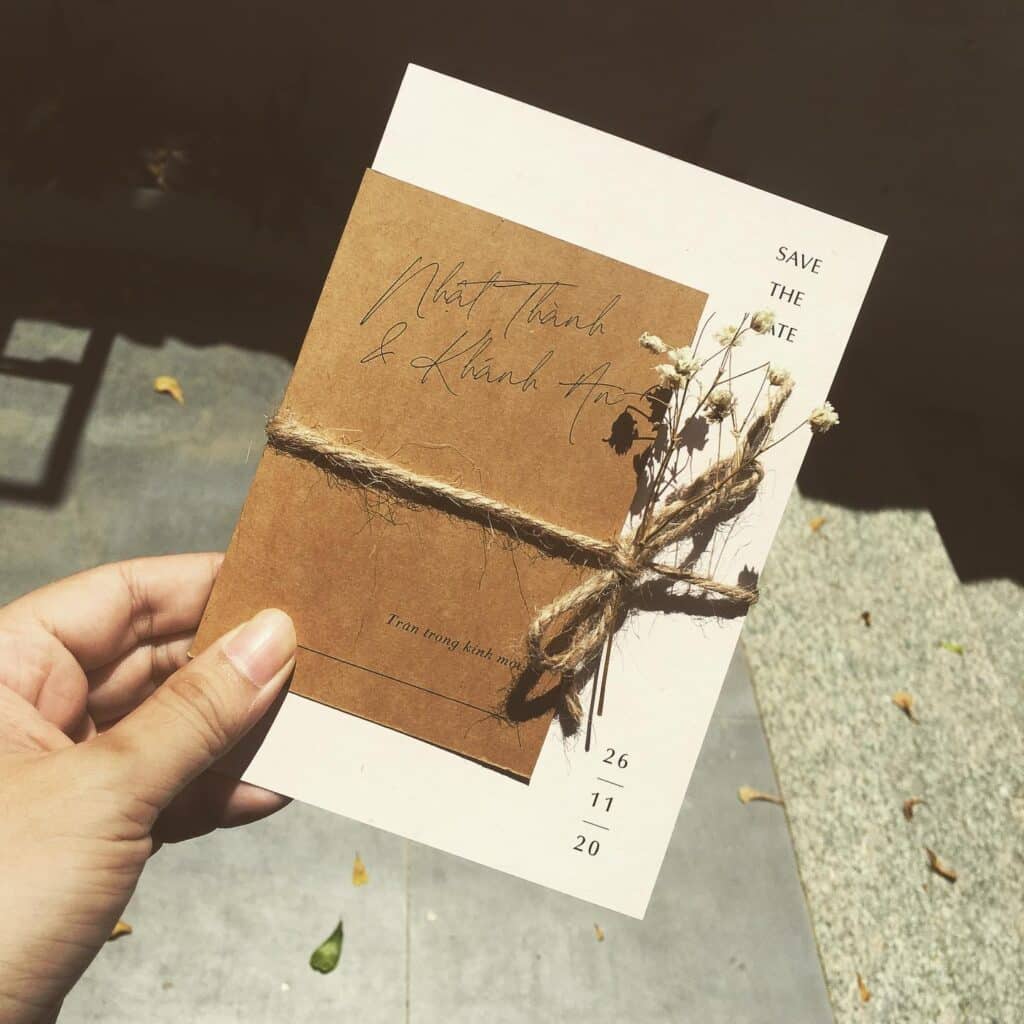 Nhật Thành
& Khánh An
Trân trọng kính mời
SAVE
THE
DATE
26
11
20